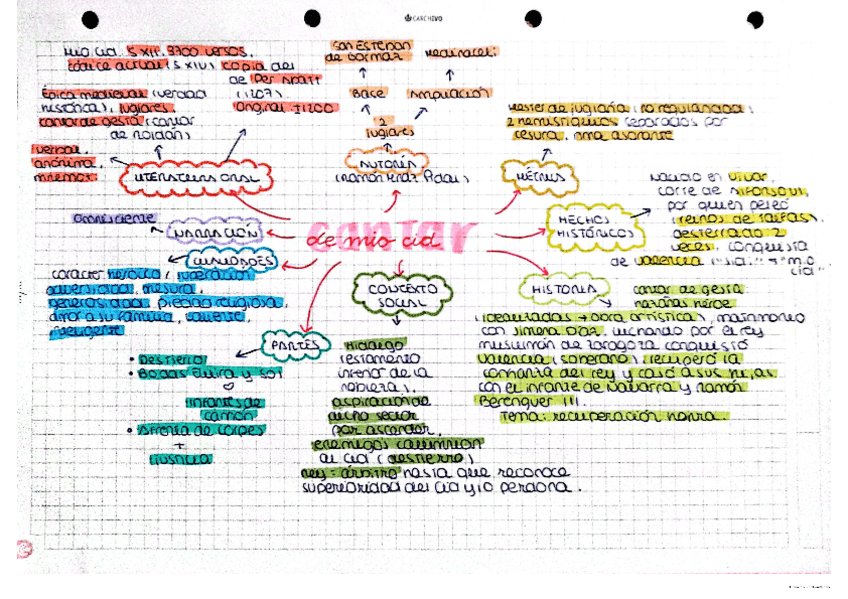 CARCHIVO
Mio cid: S XII. 3700 versos.
códice actual (S XIV) copia del
de Per Abatt
(1207).
Original ±1200
Épica medieval (verdad
histórica), juglares.
cantar de gesta (cantar
de Roldán)
verbal,
anónima,
LITERATURA ORAL
San Esteban
de Gormaz
Medinaceli
Base
Ampliación
2
juglares
AUTORES
(Ramón Mnz Pidal)
Mester de juglaría (no regularidad)
2 hemistiquios separados por
cesura, rima asonante
MÉTRICA
Nacido en Vivar,
corte de Alfonso VI,
por quien peleó
(reinos de taifas),
desterrado 2
veces, conquista
de Valencia
HECHOS
HISTÓRICOS
cantar
de mio cid
Omnisciente
NARRACIÓN
CUALIDADES
carácter heroico, superación
adversidad, mesura,
generosidad, piedad religiosa,
amor a su familia, valiente,
inteligente
PARTES
• Destierro
• Bodas Elvira y Sol
infantes de
carrión
• Afrenta de corpes
+
justicia
CONTEXTO
SOCIAL
Hidalgo
(estamento
inferior de la
nobleza),
aspiración de
dicho sector
por ascender,
enemigos calumnian
al cid (destierro)
rey = árbitro hasta que reconoce
superioridad del cid y lo perdona.
HISTORIA
cantar de gesta
hazañas héroe
(idealizadas → obra artística), matrimonio
con Jimena Díaz, luchando por el rey
musulmán de Zaragoza conquistó
Valencia (soberano), recuperó la
confianza del rey y casó a sus hijas
con el infante de Navarra y Ramón
Berenguer III.
Tema: recuperación honra.